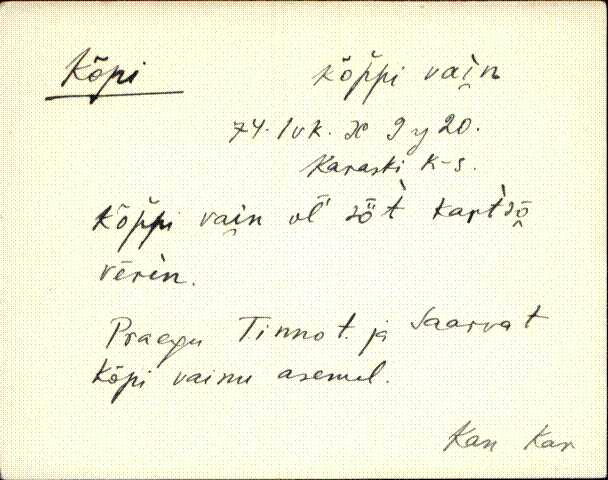 Kõpi
kõp̀pi vai̯n
74. lvk. X 9 y 20.
Karaski k-s.
Kõp̀pi vai̯n ol' sö̀t kartsõ
vērin.
Praegu Tinnot. ja Saarvat
Kõpi vainu asemel.
Kan Kar